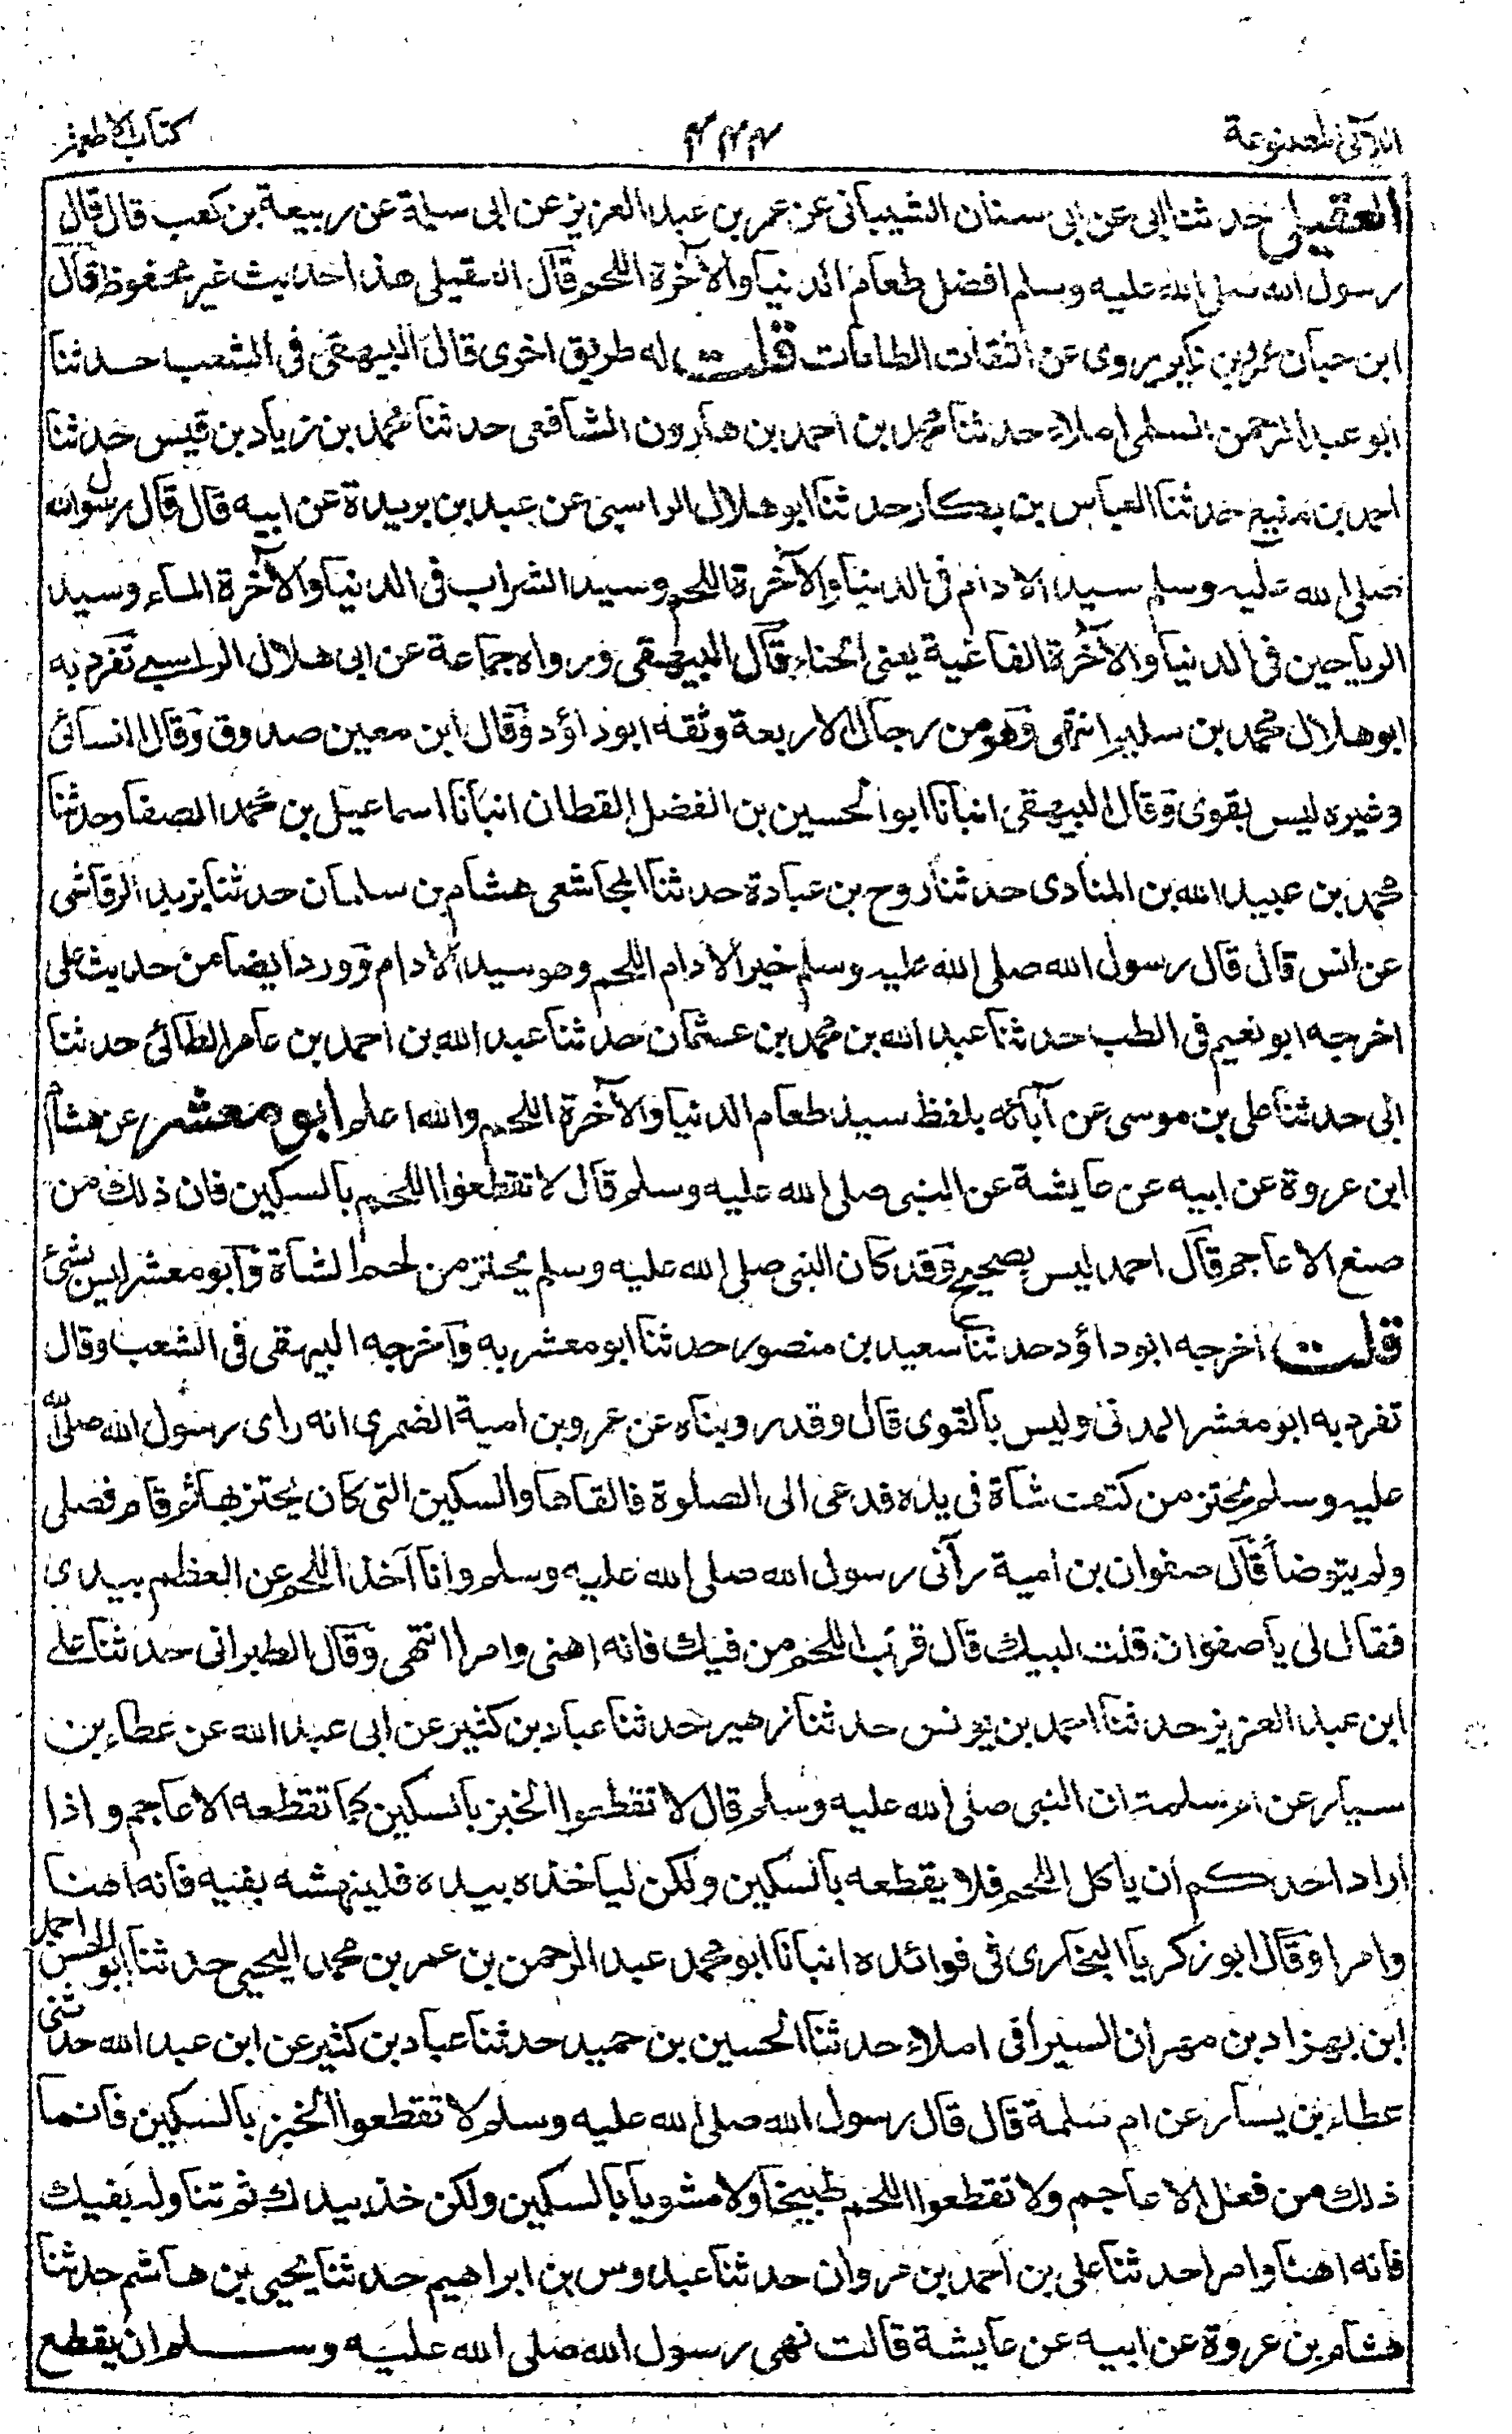 اللآلئ المصنوعة
كتاب الاطعمة
العقيلي حدثنا ابى عن ابى سنان الشيبانى عن عمر بن عبد العزيز عن ابى سلمة عن ربيعة بن كعب قال قال
رسول الله صلى الله عليه وسلم افضل طعام الدنيا والآخرة اللحم قال العقيلى هذا حديث غير محفوظ قال
ابن حبان عمر بن بكير يروى عن الثقات الطامات قلت له طريق اخرى قال البيهقى فى الشعب حدثنا
ابو عبد الرحمن السلمى املاء حدثنا محمد بن احمد بن هارون الشافعى حدثنا محمد بن زياد بن قيس حدثنا
احمد بن منيع حدثنا العباس بن بكار حدثنا ابو هلال الراسبى عن عبد بن بريدة عن ابيه قال قال رسول الله
صلى الله عليه وسلم سيد الادام فى الدنيا والآخرة اللحم وسيد الشراب فى الدنيا والآخرة الماء وسيد
الرياحين فى الدنيا والآخرة الفاغية يعنى الحناء قال البيهقى ورواه جماعة عن ابى هلال الراسبى تفرد به
ابو هلال محمد بن سليم انتهى وهو من رجال الاربعة وثقه ابو داؤد وقال ابن معين صدوق وقال النسائى
وغيره ليس بقوى وقال البيهقى انبأنا ابو الحسين بن الفضل القطان انبانا اسماعيل بن محمد الصفار حدثنا
محمد بن عبيد الله بن المنادى حدثنا روح بن عبادة حدثنا المجاشعى هشام بن سلمان حدثنا يزيد الرقاشى
عن انس قال قال رسول الله صلى الله عليه وسلم خير الادام اللحم وهو سيد الادام وورد ايضا من حديث على
اخرجه ابو نعيم فى الطب حدثنا عبد الله بن محمد بن عثمان حدثنا عبد الله بن احمد بن عامر الطائى حدثنا
ابى حدثنا على بن موسى عن آبائه بلفظ سيد طعام الدنيا والآخرة اللحم والله اعلم ابو معشر عن هشام
ابن عروة عن ابيه عن عايشة عن النبى صلى الله عليه وسلم قال لا تقطعوا اللحم بالسكين فان ذلك من
صنع الاعاجم قال احمد ليس بصحيح وقد كان النبى صلى الله عليه وسلم يحتز من لحم الشاة وابو معشر ليس بشئ
قلت اخرجه ابو داؤد حدثنا سعيد بن منصور حدثنا ابو معشر به واخرجه البيهقى فى الشعب وقال
تفرد به ابو معشر المدنى وليس بالقوى قال وقد روبناه عن عمرو بن امية الضمرى انه راى رسول الله صلى الله
عليه وسلم يحتز من كتف شاة فى يده فدعى الى الصلوة فالقاها والسكين التى كان يحتز بها ثم قام فصلى
ولم يتوضأ قال صفوان بن امية رآنى رسول الله صلى الله عليه وسلم وانا آخذ اللحم عن العظم بيدى
فقال لى يا صفوان قلت لبيك قال قرب اللحم من فيك فانه اهنى وامرا انتهى وقال الطبرانى حدثنا على
ابن عبد العزيز حدثنا احمد بن يونس حدثنا زهير حدثنا عباد بن كثير عن ابى عبد الله عن عطاء بن
سيار عن ام سلمة ان النبى صلى الله عليه وسلم قال لا تقطعوا الخبز بالسكين كما تقطعه الاعاجم واذا
اراد احدكم ان ياكل اللحم فلا يقطعه بالسكين ولكن لياخذه بيده فلينهشه بفيه فانه اهنا
وامرا وقال ابو زكريا البخارى فى فوائده انبانا ابو محمد عبد الرحمن بن عمر بن محمد اليحيى حدثنا ابو الحسن احمد
ابن بهزاد بن مهران السيرافى املاء حدثنا الحسين بن حميد حدثنا عباد بن كثير عن ابن عبد الله حدثنى
عطاء بن يسار عن ام سلمة قال قال رسول الله صلى الله عليه وسلم لا تقطعوا الخبز بالسكين فانما
ذلك من فعل الاعاجم ولا تقطعوا اللحم طبيخا ولا مشويا بالسكين ولكن خذ بيدك ثم تناوله بفيك
فانه اهنا وامرا حدثنا على بن احمد بن مروان حدثنا عبدوس بن ابراهيم حدثنا يحيى بن هاشم حدثنا
هشام بن عروة عن ابيه عن عايشة قالت نهى رسول الله صلى الله عليه وسلم ان يقطع